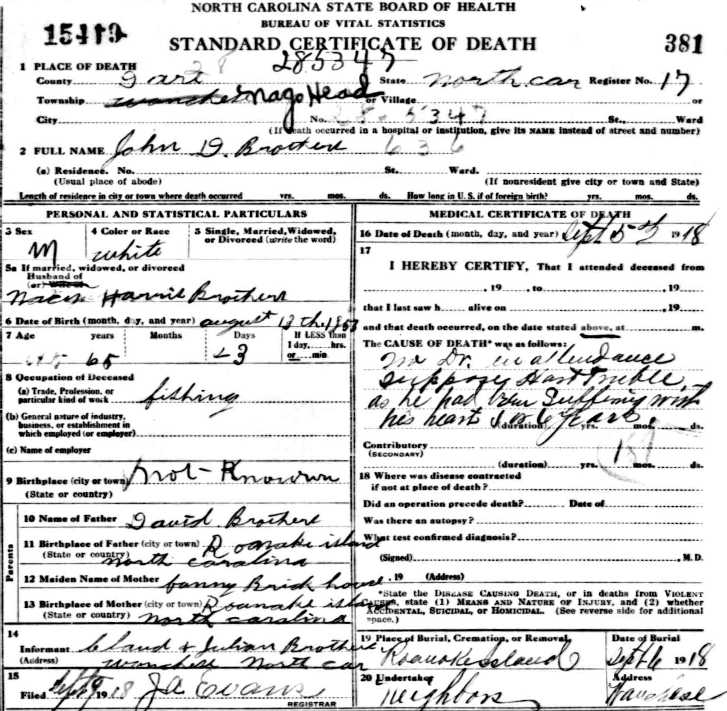 NORTH CAROLINA STATE BOARD OF HEALTH
BUREAU OF VITAL STATISTICS
STANDARD CERTIFICATE OF DEATH 381
1 PLACE OF DEATH 285347
County State North Car Register No. 17
Township Nags Head or Village or
City No. St., Ward
(If death occurred in a hospital or institution, give its NAME instead of street and number)
2 FULL NAME John D. Brothers 636
(a) Residence. No. St. Ward.
(Usual place of abode) (If nonresident give city or town and State)
Length of residence in city or town where death occurred yrs. mos. ds. How long in U. S. if of foreign birth? yrs. mos. ds.
PERSONAL AND STATISTICAL PARTICULARS
3 Sex 4 Color or Race 5 Single, Married, Widowed, or Divorced (write the word)
M white
5a If married, widowed, or divorced
Husband of
(or) Wife of
Harris Brothers
6 Date of Birth (month, day, and year) august 13 th
7 Age years Months Days If LESS than
1 day, hrs.
or min
65
8 Occupation of Deceased
(a) Trade, Profession, or
particular kind of work fishing
(b) General nature of industry,
business, or establishment in
which employed (or employer)
(c) Name of employer
9 Birthplace (city or town) not Known
(State or country)
Parents
10 Name of Father David Brothers
11 Birthplace of Father (city or town) Roanake island
(State or country) north carolina
12 Maiden Name of Mother fanny Brick house
13 Birthplace of Mother (city or town) Roanake island
(State or country) north carolina
14
Informant Claud & Julian Brothers
(Address) wanchese North Car
15
Filed Sept 9 1918 J A Evans
REGISTRAR
MEDICAL CERTIFICATE OF DEATH
16 Date of Death (month, day, and year) Sept 5th 1918
17
I HEREBY CERTIFY, That I attended deceased from
, 19 , to , 19
that I last saw h alive on , 19
and that death occurred, on the date stated above, at m.
The CAUSE OF DEATH* was as follows:
no Dr. in attendance
Suppose Hart Truble,
as he had bein Suffering with
his heart 5 or 6 years
(duration) yrs. mos. ds.
Contributory
(SECONDARY)
(duration) yrs. mos. ds.
18 Where was disease contracted
if not at place of death?
Did an operation precede death? Date of
Was there an autopsy?
What test confirmed diagnosis?
(Signed) M. D.
, 19 (Address)
*State the DISEASE CAUSING DEATH, or in deaths from VIOLENT
CAUSES, state (1) MEANS AND NATURE OF INJURY, and (2) whether
ACCIDENTAL, SUICIDAL, or HOMICIDAL. (See reverse side for additional
space.)
19 Place of Burial, Cremation, or Removal Date of Burial
Roanoke Island Sept 6 1918
20 Undertaker Address
Neighbors